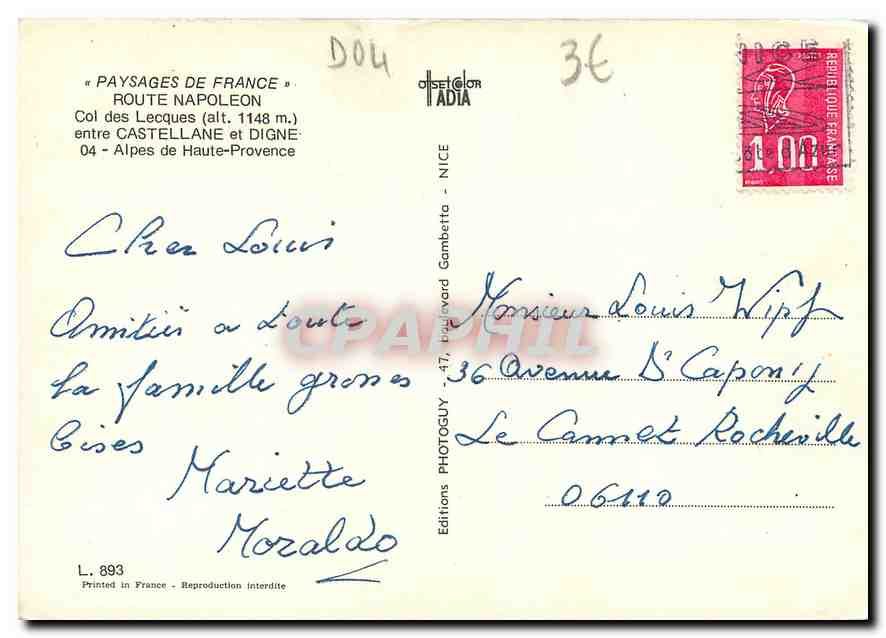 D04
3€
« PAYSAGES DE FRANCE »
ROUTE NAPOLEON
Col des Lecques (alt. 1148 m.)
entre CASTELLANE et DIGNE
04 - Alpes de Haute-Provence
offset color
IADIA
NICE
REPUBLIQUE FRANCAISE
1,00
Cher Louis
Amitiés a toute
la famille grosses
bises
Mariette
Moraldo
L. 893
Printed in France - Reproduction interdite
Editions PHOTOGUY - 47, boulevard Gambetta - NICE
CPAPHIL
Monsieur Louis Wipf
36 avenue Dr Capony
Le Cannet Rocheville
06110